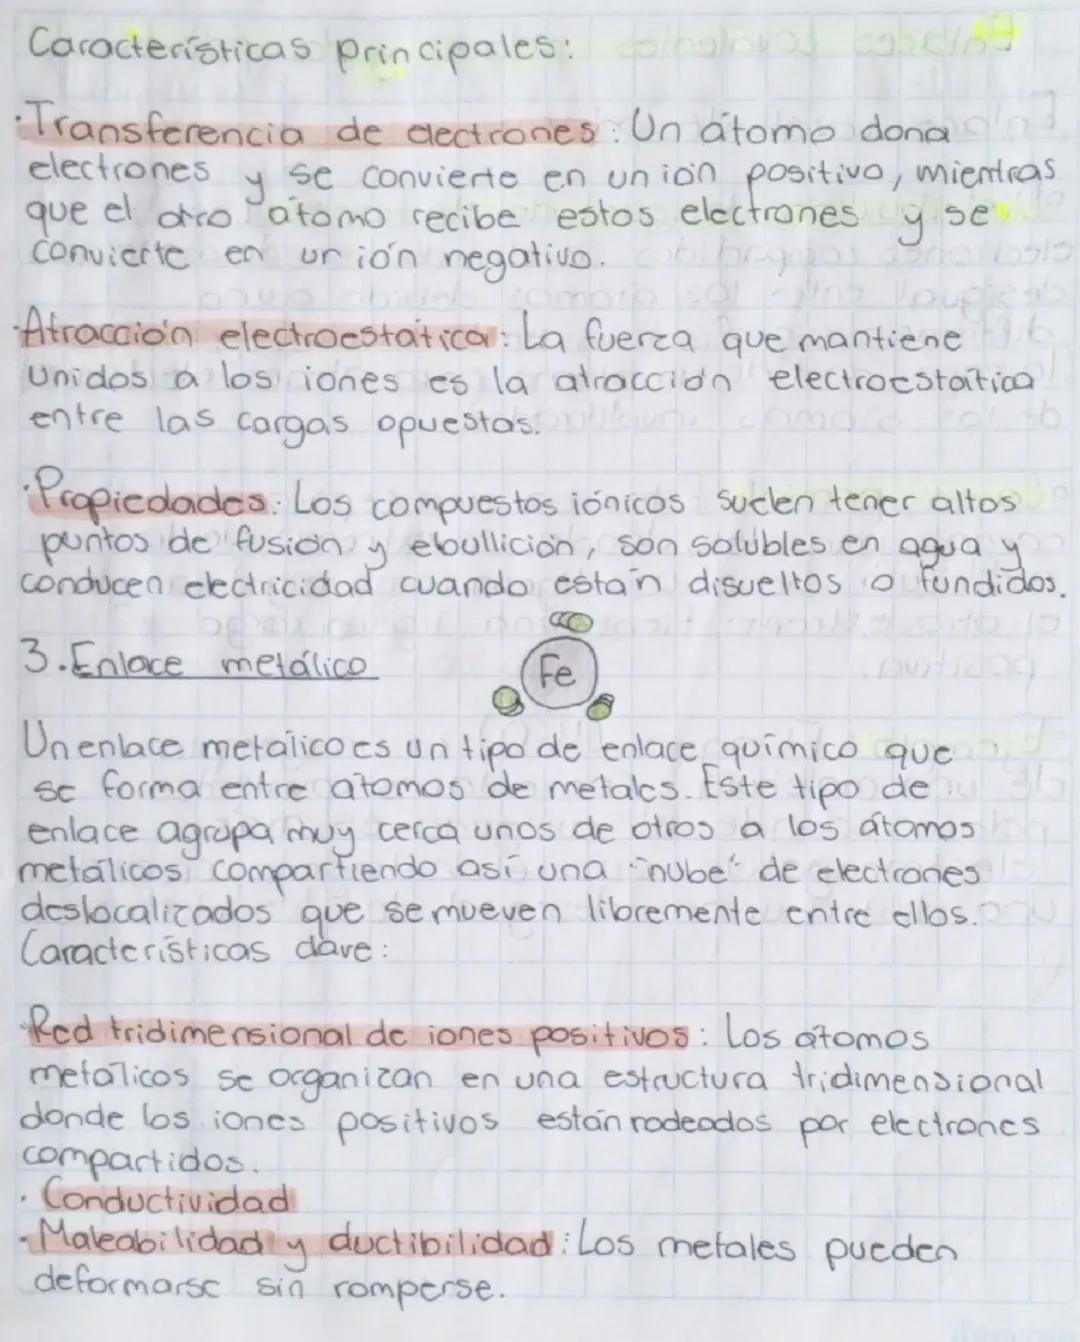 Características principales:
·Transferencia de electrones: Un átomo dona
electrones y se convierte en un ión positivo, mientras
que el otro átomo recibe estos electrones y se
convierte en un ión negativo.
·Atracción electroestática: La fuerza que mantiene
unidos a los iones es la atracción electroestática
entre las cargas opuestas.
·Propiedades: Los compuestos iónicos suelen tener altos
puntos de fusión y ebullición, son solubles en agua y
conducen electricidad cuando están disueltos o fundidos.
3. Enlace metálico
Fe
Un enlace metálico es un tipo de enlace químico que
se forma entre átomos de metales. Este tipo de
enlace agrupa muy cerca unos de otros a los átomos
metálicos, compartiendo así una "nube" de electrones
deslocalizados que se mueven libremente entre ellos.
Características clave:
·Red tridimensional de iones positivos: Los átomos
metálicos se organizan en una estructura tridimensional
donde los iones positivos están rodeados por electrones
compartidos.
· Conductividad
· Maleabilidad y ductibilidad: Los metales pueden
deformarse sin romperse.